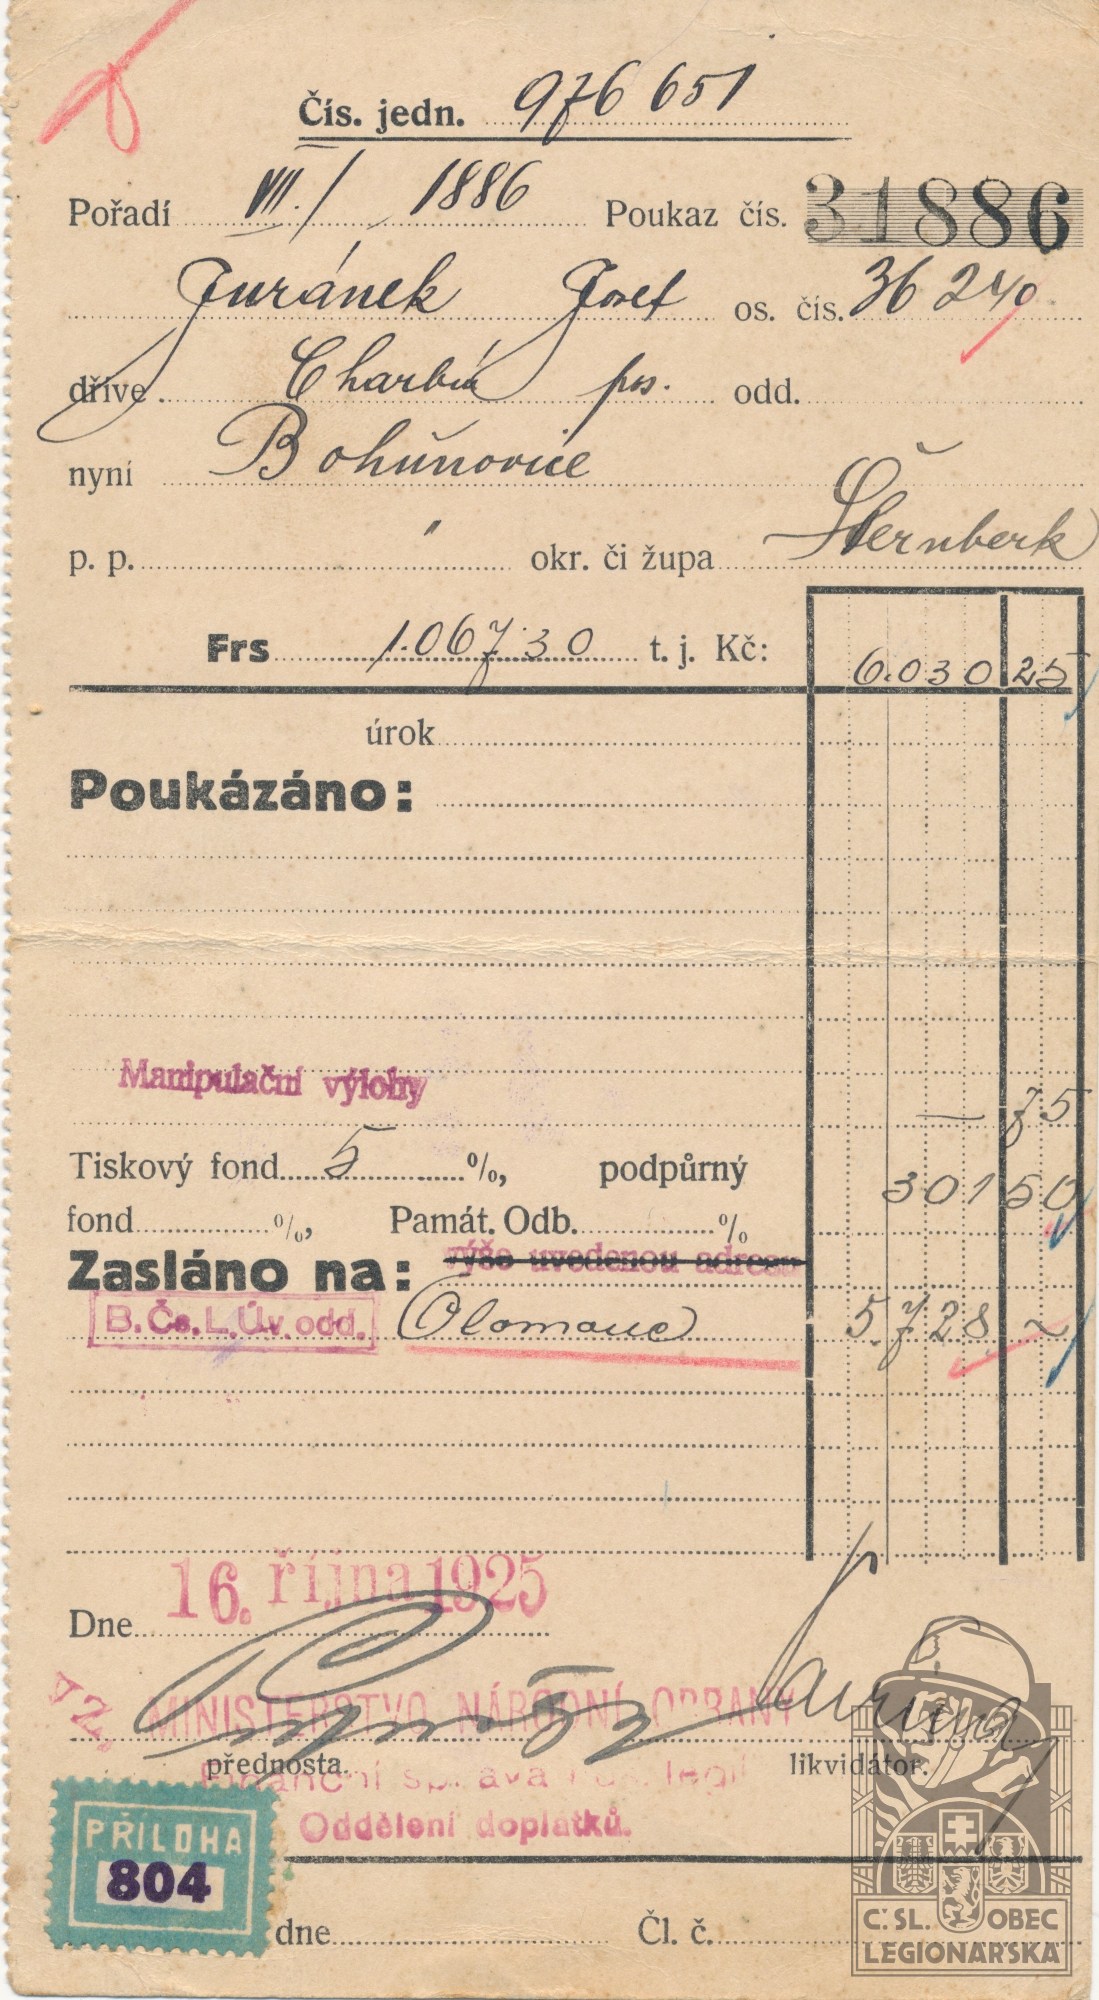 Čís. jedn. 976 651
Pořadí VII./ 1886 Poukaz čís. 31886
Juránek Josef os. čís. 36 240
dříve Charbin pos. odd.
nyní Bohuňovice
p. p. " okr. či župa Šternberk
Frs 1.067 30 t. j. Kč: 6.030 25
úrok
Poukázáno:
Manipulační výlohy — 75
Tiskový fond 5 %, podpůrný 301 50
fond %, Památ. Odb. %
Zasláno na: výše uvedenou adresu
B.Čs.L.Úv.odd. Olomouc 5.728 ~
Dne 16. října 1925
MINISTERSTVO NÁRODNÍ OBRANY
přednosta. likvidátor.
Finanční správa čsl. legií
Oddělení doplatků.
PŘÍLOHA
804
dne Čl. č.
Č. SL. OBEC
LEGIONÁŘSKÁ